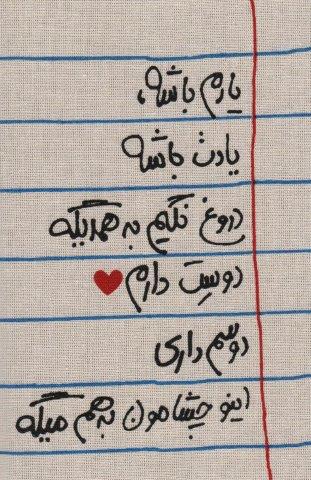 یادم باشه،
یادت باشه
دروغ نگیم به همدیگه
دوسِت دارم
دوسم داری
اینو چشامون به هم میگه